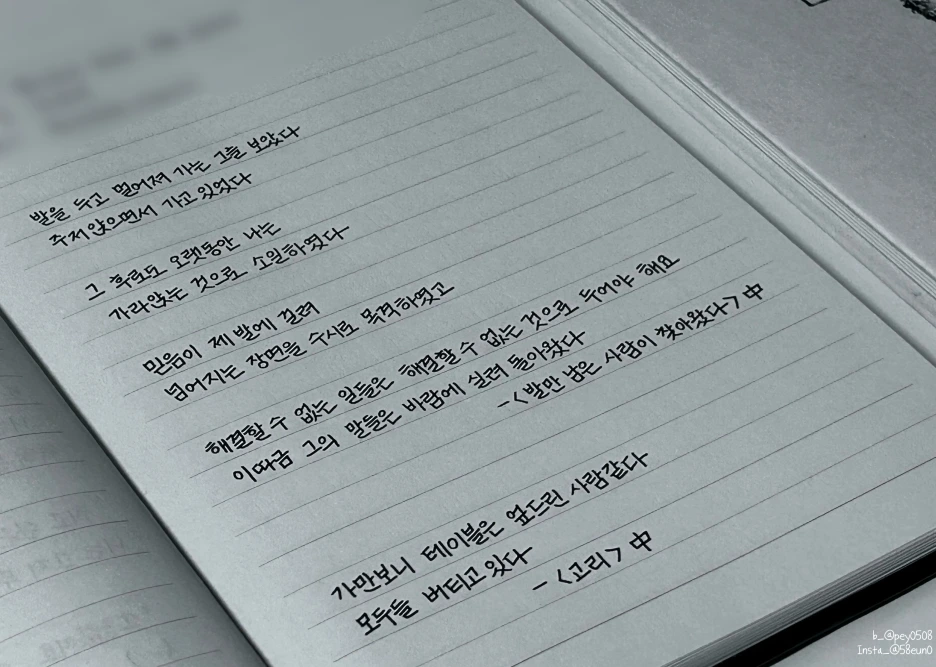 발을 두고 멀어져 가는 그를 보았다
주저앉으면서 가고 있었다
그 후로도 오랫동안 나는
가라앉는 것으로 소일하였다
믿음이 제 발에 걸려
넘어지는 장면을 수시로 목격하였고
해결할 수 없는 일들은 해결할 수 없는 것으로 두어야 해요
이따금 그의 말들은 바람에 실려 돌아왔다
-<발만 남은 사람이 찾아왔다> 中
가만보니 테이블은 엎드린 사람같다
모두들 버티고 있다
- <고리> 中
b_@pey0508
Insta_@58eun0